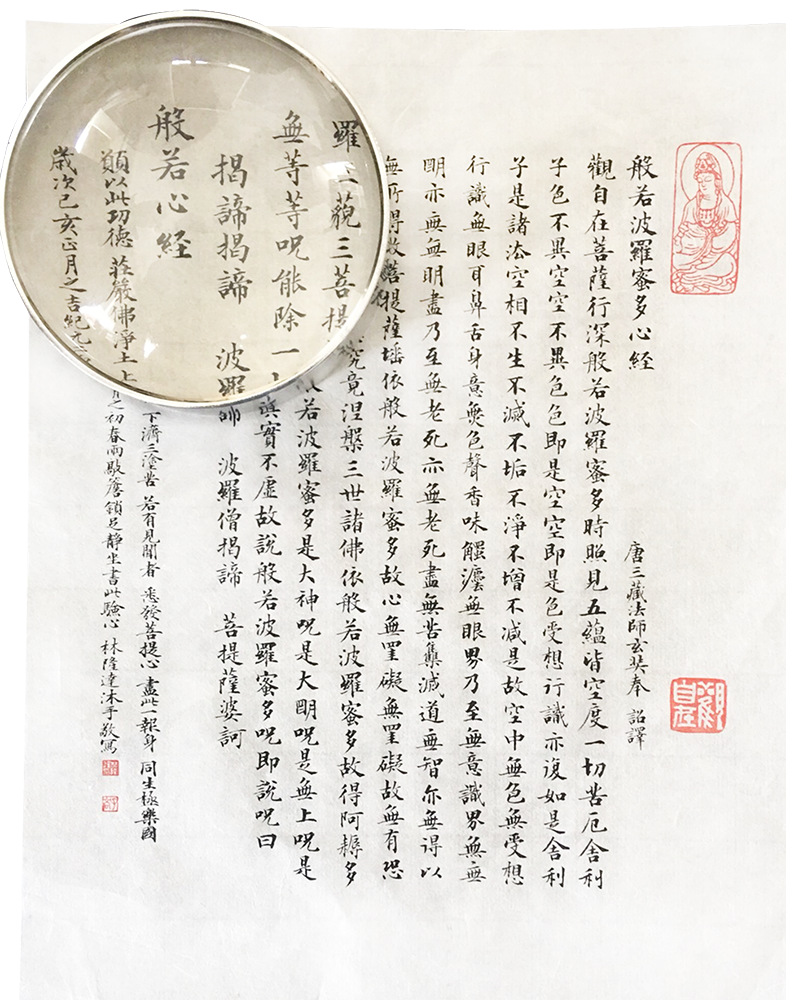 般若波羅蜜多心経
唐三藏法師玄奘奉 詔譯
觀自在菩薩行深般若波羅蜜多時照見五蘊皆空度一切苦厄舍利
子色不異空空不異色色即是空空即是色受想行識亦復如是舍利
子是諸法空相不生不滅不垢不淨不增不減是故空中無色無受想
行識無眼耳鼻舌身意無色聲香味觸法無眼界乃至無意識界無無
明亦無無明盡乃至無老死亦無老死盡無苦集滅道無智亦無得以
無所得故菩提薩埵依般若波羅蜜多故心無罣礙無罣礙故無有恐
究竟涅槃三世諸佛依般若波羅蜜多故得阿耨多
羅三藐三菩提般若波羅蜜多是大神呪是大明呪是無上呪是
無等等呪能除一真實不虛故說般若波羅蜜多呪即說呪曰
揭諦揭諦 波羅諦 波羅僧揭諦 菩提薩婆訶
般若心経
願以此功德 莊嚴佛淨土 上下濟三塗苦 若有見聞者 悉發菩提心 盡此一報身 同生極樂國
歲次己亥正月之吉紀元之初春雨敲簷鎖足靜坐書此驗心 林隆達沐手敬寫
觀自在